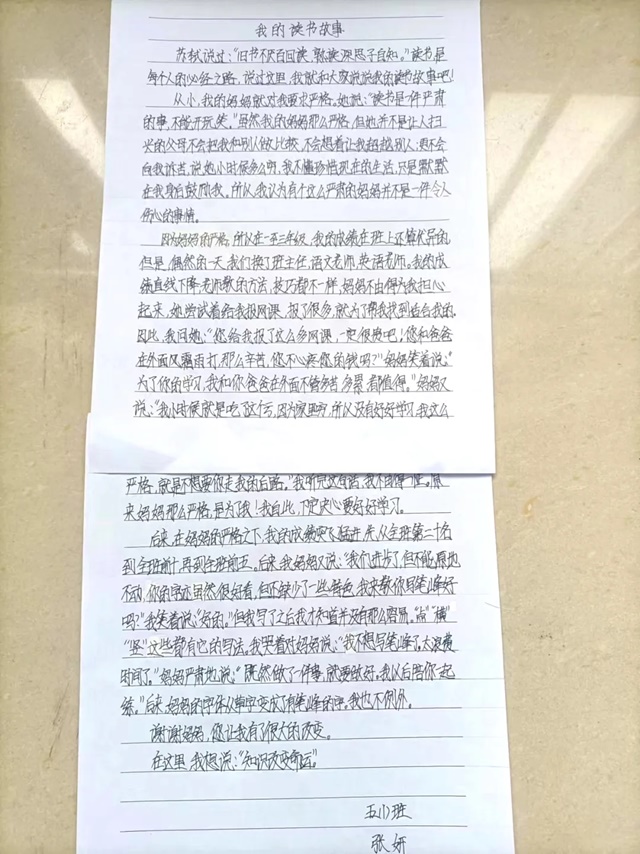 我的读书故事
苏轼说过："旧书不厌百回读,熟读深思子自知。"读书是
每个人的必经之路,说过这里,我就和大家说说我的读书故事吧!
从小,我的妈妈就对我要求严格。她说:"读书是一件严肃
的事,不能开玩笑。"虽然我的妈妈那么严格,但她并不是让人扫
兴的父母不会把我和别人做比较,不会想着让我超越别人;更不会
向我诉苦,说她小时候多么穷,我不懂珍惜现在的生活,只是默默
在我身自鼓励我。所以,我认为有个这么严肃的妈妈并不是一件令人
伤心的事情。
因为妈妈的严格,所以在一至三年级,我的成绩在班上还算优异的
但是,偶然的一天,我们换了班主任,语文老师,英语老师,我的成
绩直线下降,老师教的方法,技巧都不一样,妈妈不由得为我担心
起来,她尝试着给我报网课,报了很多,就为了帮我找到适合我的。
因此,我问她:"您给我报了这么多网课,一定很贵吧!您和爸爸
在外面风霜雨打,那么辛苦,您不心疼您的钱吗?"妈妈笑着说:"
为了你的学习,我和你爸爸在外面不管多苦多累都值得。"妈妈又
说:"我小时候就是吃了这个亏,因为家里穷,所以没有好好学习,我这么
严格,就是不想要你走我的后路。"我听完这句话,我不由得一怔。原
来妈妈那么严格,是为了我!我自此,下定决心要好好学习。
后来,在妈妈的严格之下,我的成绩突飞猛进,先从全班第二十名
到全班前十,再到全班前五。后来,我妈妈又说:"我们进步了,但不能原地
不动,你的字迹虽然很好看,但还缺少了一些特色,我来教你写笔峰好
吗?"我笑着说:"好的。"但我写了之后我才知道并没有那么容易。"点""横"
"竖"这些都有它的写法。我哭着对妈妈说:"我不想写笔峰了,太浪费
时间了。"妈妈严肃地说:"既然做了一件事,就要做好。我以后陪你一起
练。"后来,妈妈的字体从草字变成了有笔峰的字。我也不例外。
谢谢妈妈,您让我有了很大的改变。
在这里,我想说:"知识改变命运"。
五(1)班
张妍